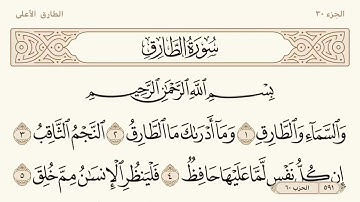 الجزء ٣٠
الطارق الأعلى
سُورَةُ الطَّارِقِ
بِسْمِ اللَّهِ الرَّحْمَٰنِ الرَّحِيمِ
وَالسَّمَاءِ وَالطَّارِقِ ١ وَمَا أَدْرَىٰكَ مَا الطَّارِقُ ٢ النَّجْمُ الثَّاقِبُ ٣
إِن كُلُّ نَفْسٍ لَّمَّا عَلَيْهَا حَافِظٌ ٤ فَلْيَنظُرِ الْإِنسَٰنُ مِمَّ خُلِقَ ٥
٥٩١ الحزب ٦٠